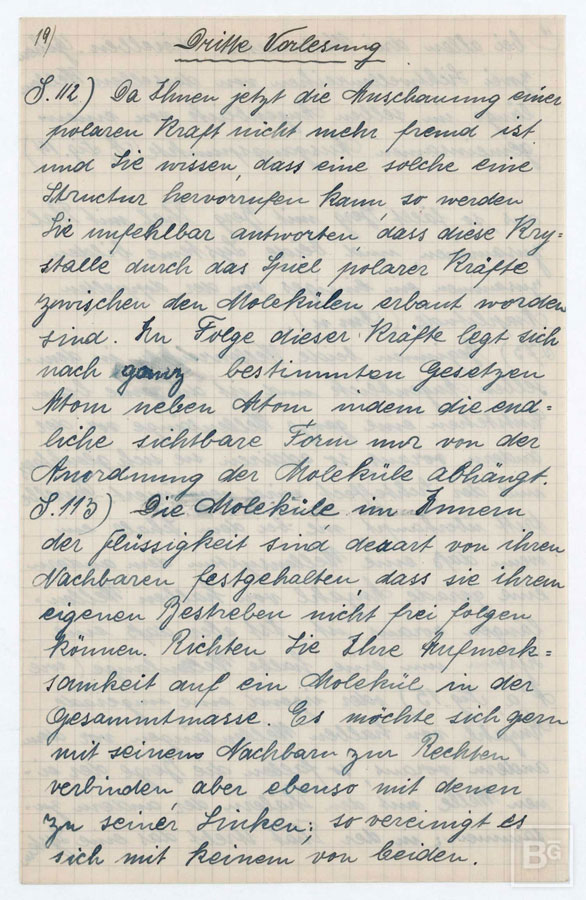 19/
Dritte Vorlesung
S. 112) Da Ihnen jetzt die Anschauung einer
polaren Kraft nicht mehr fremd ist
und Sie wissen, dass eine solche eine
Structur hervorrufen kann so werden
Sie unfehlbar antworten, dass diese Kry=
stalle durch das Spiel polarer Kräfte
zwischen den Molekülen erbaut worden
sind. In Folge dieser Kräfte legt sich
nach ganz bestimmten Gesetzen
Atom neben Atom indem die end=
liche sichtbare Form nur von der
Anordnung der Moleküle abhängt.
S. 113) Die Moleküle im Innern
der Flüssigkeit sind derart von ihren
Nachbaren festgehalten, dass sie ihrem
eigenen Bestreben nicht frei folgen
können. Richten Sie Ihre Aufmerk=
samkeit auf ein Molekül in der
Gesammtmasse. Es möchte sich gern
mit seinem Nachbarn zur Rechten
verbinden aber ebenso mit denen
zu seiner Linken; so vereinigt es
sich mit keinem von beiden.
BG